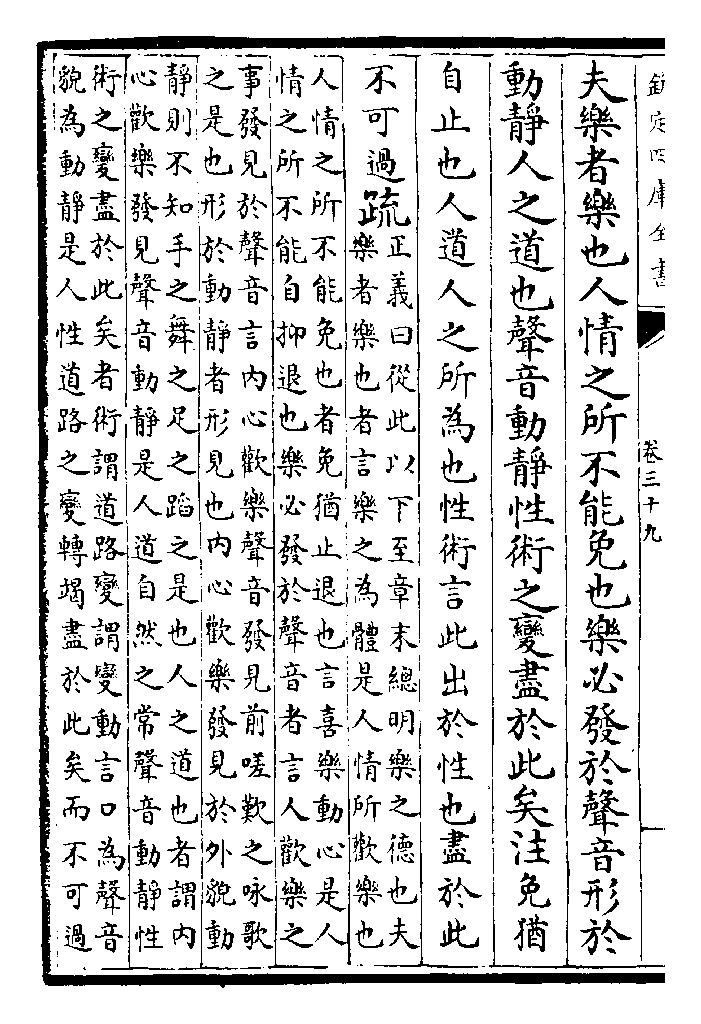 欽定四庫全書
卷三十九
夫樂者樂也人情之所不能免也樂必發於聲音形於
動靜人之道也聲音動靜性術之變盡於此矣注免猶
自止也人道人之所為也性術言此出於性也盡於此
不可過疏正義曰從此以下至章末總明樂之德也夫
樂者樂也者言樂之為體是人情所歡樂也
人情之所不能免也者免猶止退也言喜樂動心是人
情之所不能自抑退也樂必發於聲音者言人歡樂之
事發見於聲音言內心歡樂聲音發見前嗟歎之咏歌
之是也形於動靜者形見也內心歡樂發見於外貌動
靜則不知手之舞之足之蹈之是也人之道也者謂內
心歡樂發見聲音動靜是人道自然之常聲音動靜性
術之變盡於此矣者術謂道路變謂變動言口為聲音
貌為動靜是人性道路之變轉竭盡於此矣而不可過